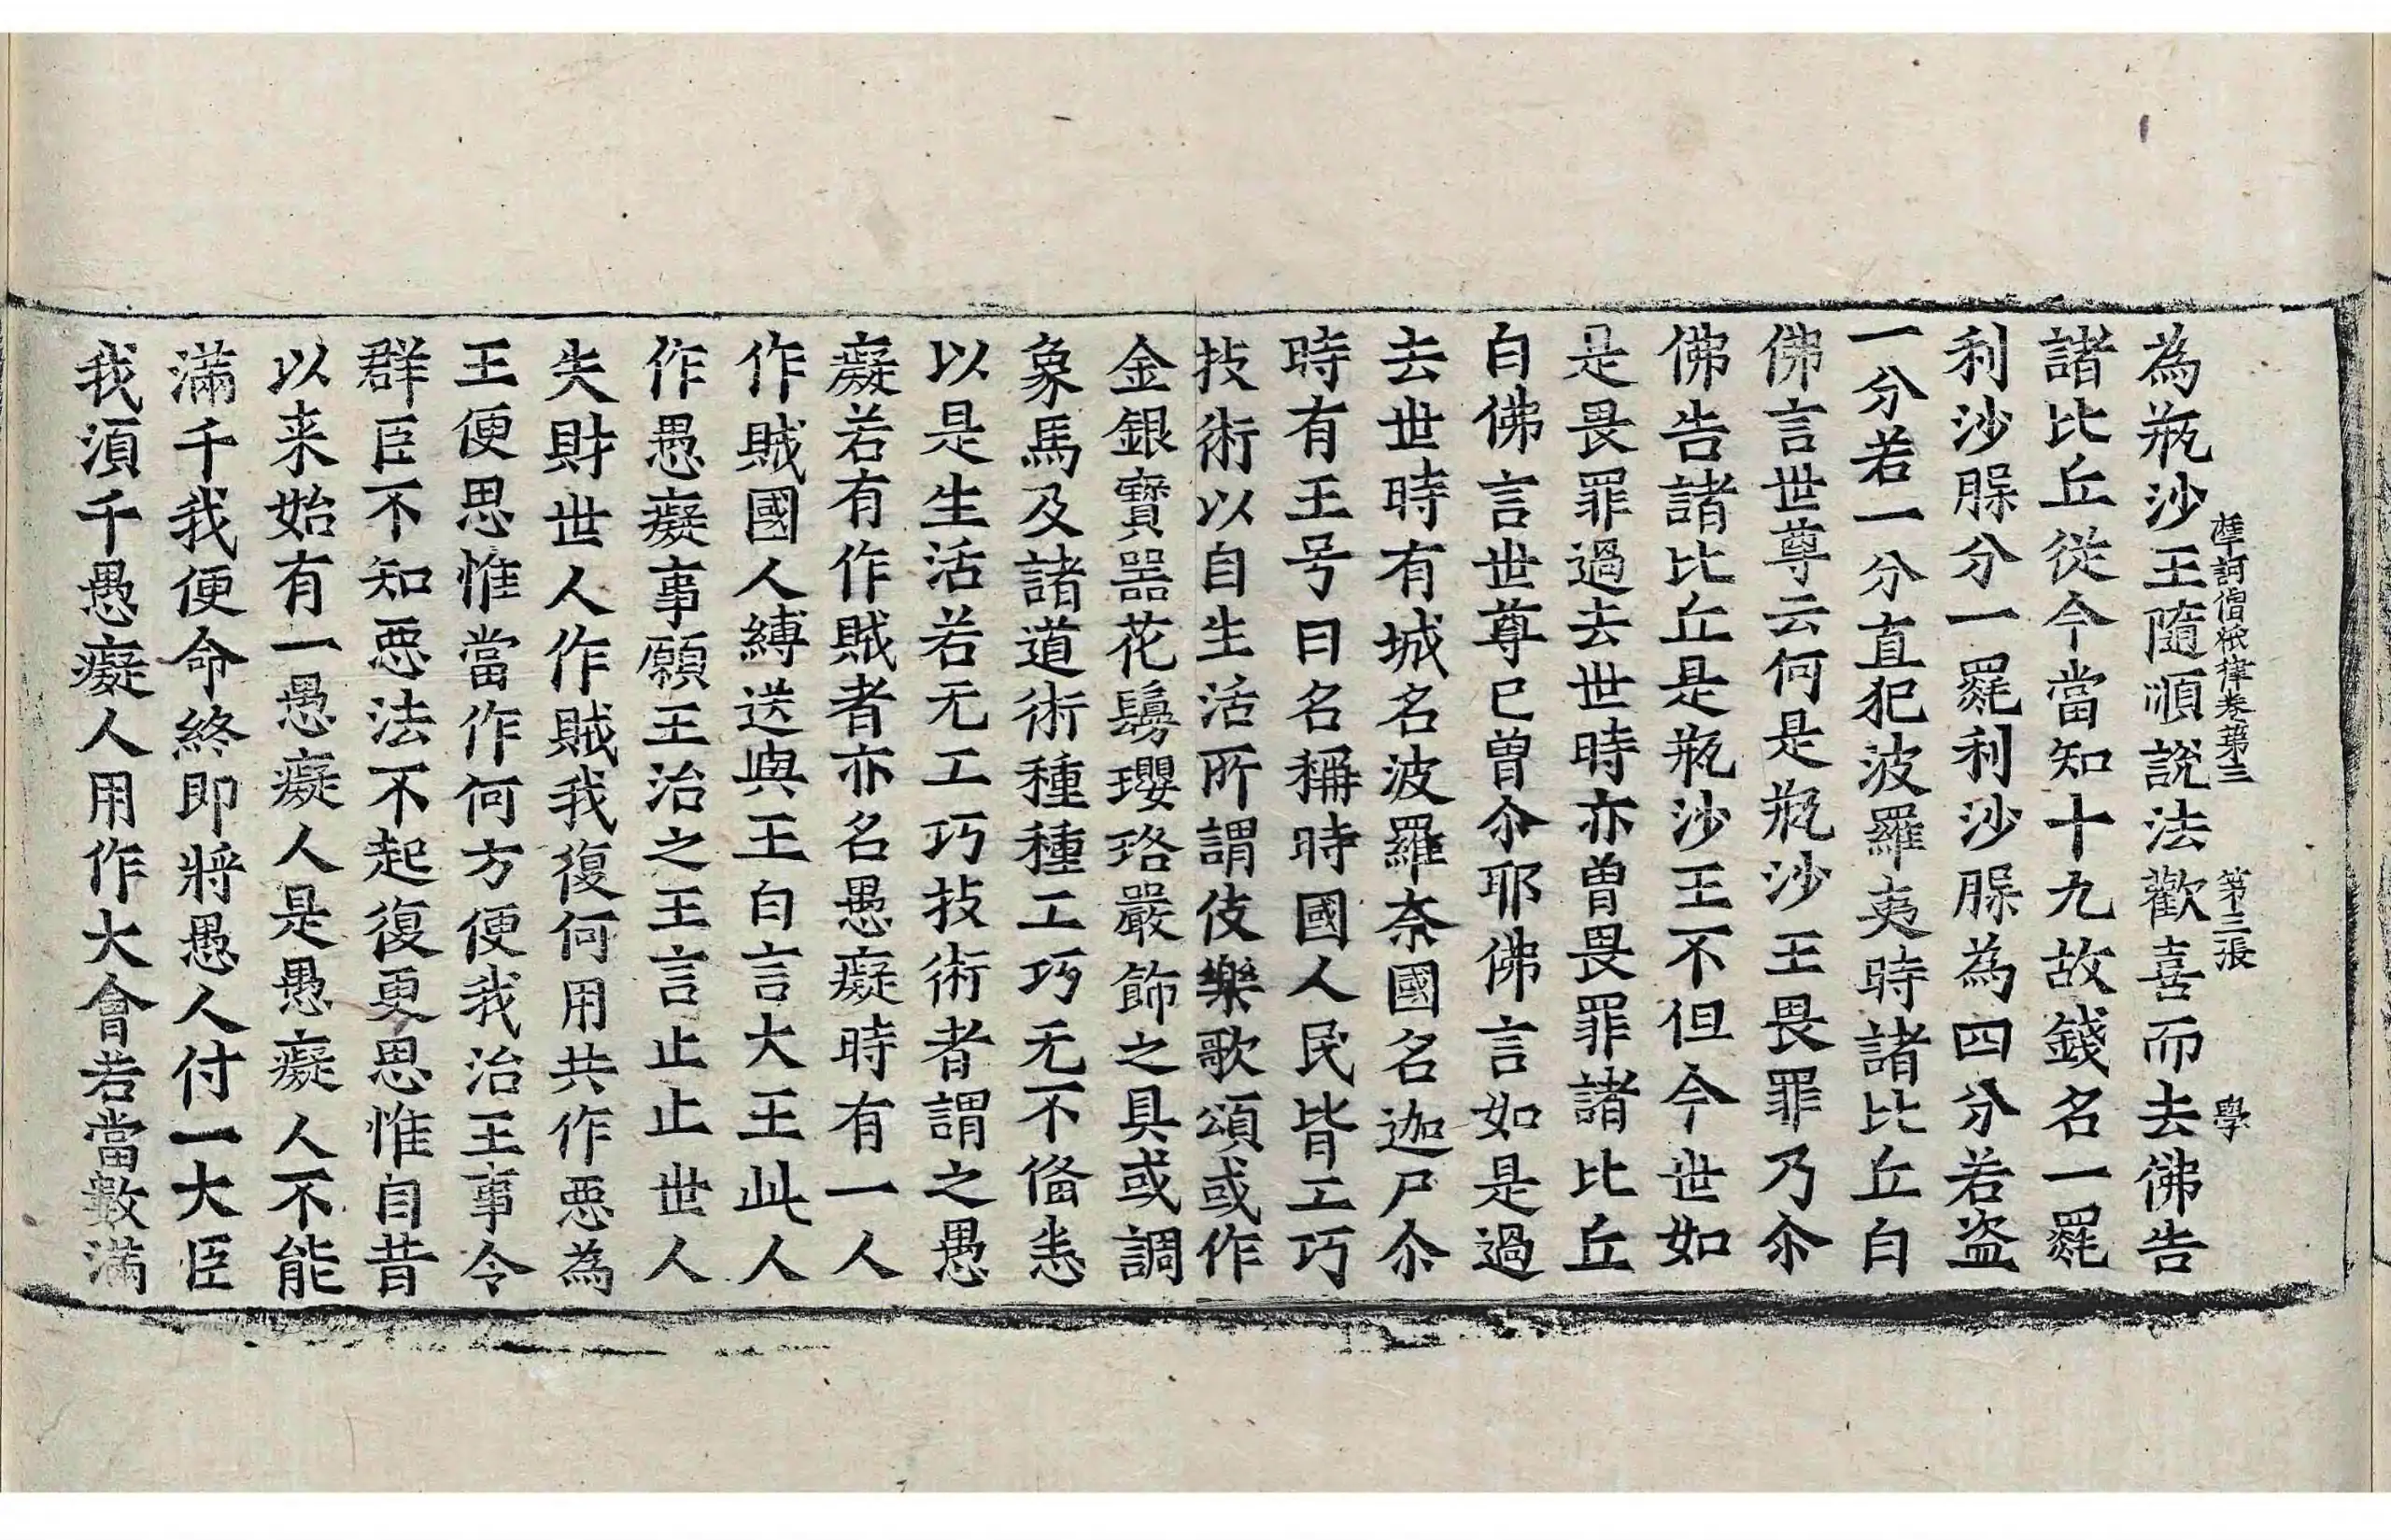 摩訶僧祇律卷第三　第三張　學
為瓶沙王隨順說法歡喜而去佛告
諸比丘從今當知十九故錢名一罽
利沙腺分一罽利沙腺為四分若盗
一分若一分直犯波羅夷時諸比丘白
佛言世尊云何是瓶沙王畏罪乃尒
佛告諸比丘是瓶沙王不但今世如
是畏罪過去世時亦曾畏罪諸比丘
白佛言世尊已曾尒耶佛言如是過
去世時有城名波羅奈國名迦尸尒
時有王号曰名稱時國人民皆工巧
技術以自生活所謂伎樂歌頌或作
金銀寶器花鬘瓔珞嚴飾之具或調
象馬及諸道術種種工巧无不俻悉
以是生活若无工巧技術者謂之愚
癡若有作賊者亦名愚癡時有一人
作賊國人縛送與王白言大王此人
作愚癡事願王治之王言止止世人
失財世人作賊我復何用共作惡為
王便思惟當作何方便我治王事令
群臣不知惡法不起復更思惟自昔
以来始有一愚癡人是愚癡人不能
滿千我便命終即將愚人付一大臣
我湏千愚癡人用作大會若當數滿